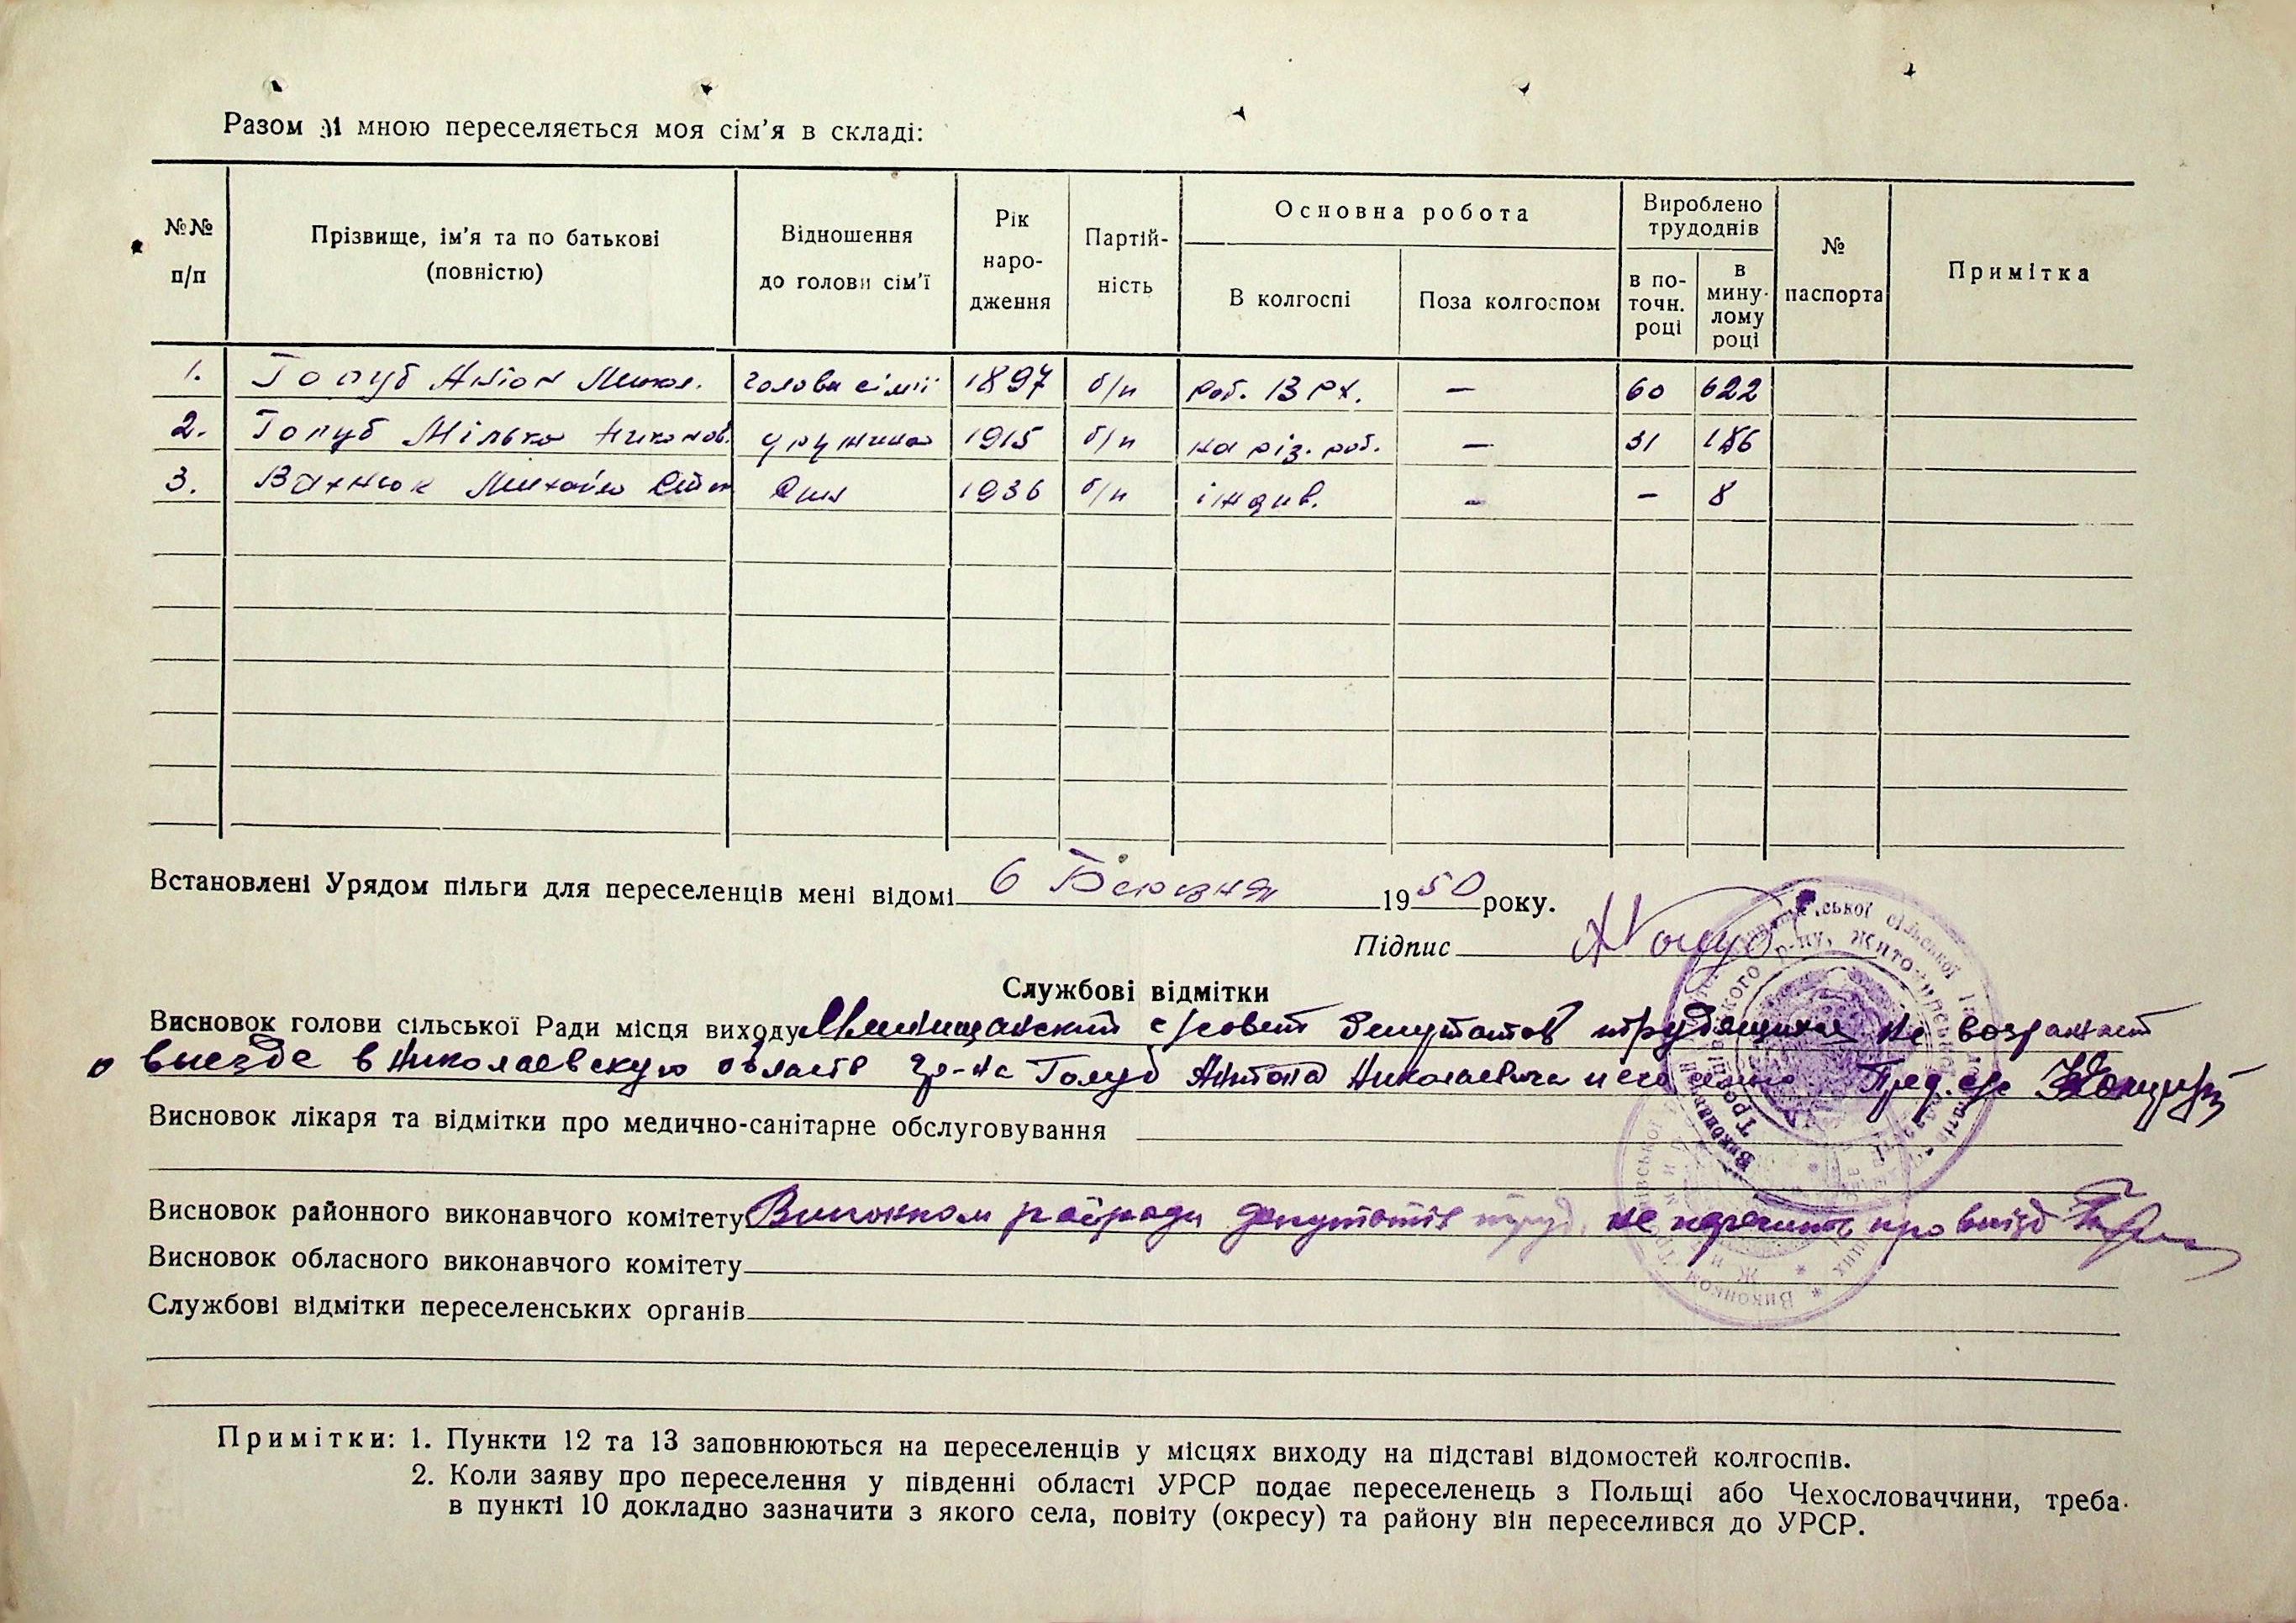 Разом зі мною переселяється моя сім'я в складі:
№№ п/п
Прізвище, ім'я та по батькові (повністю)
Відношення до голови сім'ї
Рік народження
Партійність
Основна робота
В колгоспі
Поза колгоспом
Вироблено трудоднів
в поточн. році
в минулому році
№ паспорта
Примітка
1. Голуб Антон Микол. голова сімії 1897 б/п роб. — 60 622
2. Голуб Мілька Никонов. дружина 1915 б/п на різ. роб. — 31 186
3. Вахнюк Михайло 1936 б/п індив. — — 8
Встановлені Урядом пільги для переселенців мені відомі 6 Березня 1950 року.
Підпис АГолуб
Службові відмітки
Висновок голови сільської Ради місця виходу с/совет депутатов трудящихся не возражает
о выезде в Николаевскую область гр-на Голуб Антона Николаевича и его семью. Пред. с/с
Висновок лікаря та відмітки про медично-санітарне обслуговування
Висновок районного виконавчого комітету Виконком райради депутатів труд. не перечить про виїзд
Висновок обласного виконавчого комітету
Службові відмітки переселенських органів
Примітки: 1. Пункти 12 та 13 заповнюються на переселенців у місцях виходу на підставі відомостей колгоспів.
2. Коли заяву про переселення у південні області УРСР подає переселенець з Польщі або Чехословаччини, треба
в пункті 10 докладно зазначити з якого села, повіту (окресу) та району він переселився до УРСР.